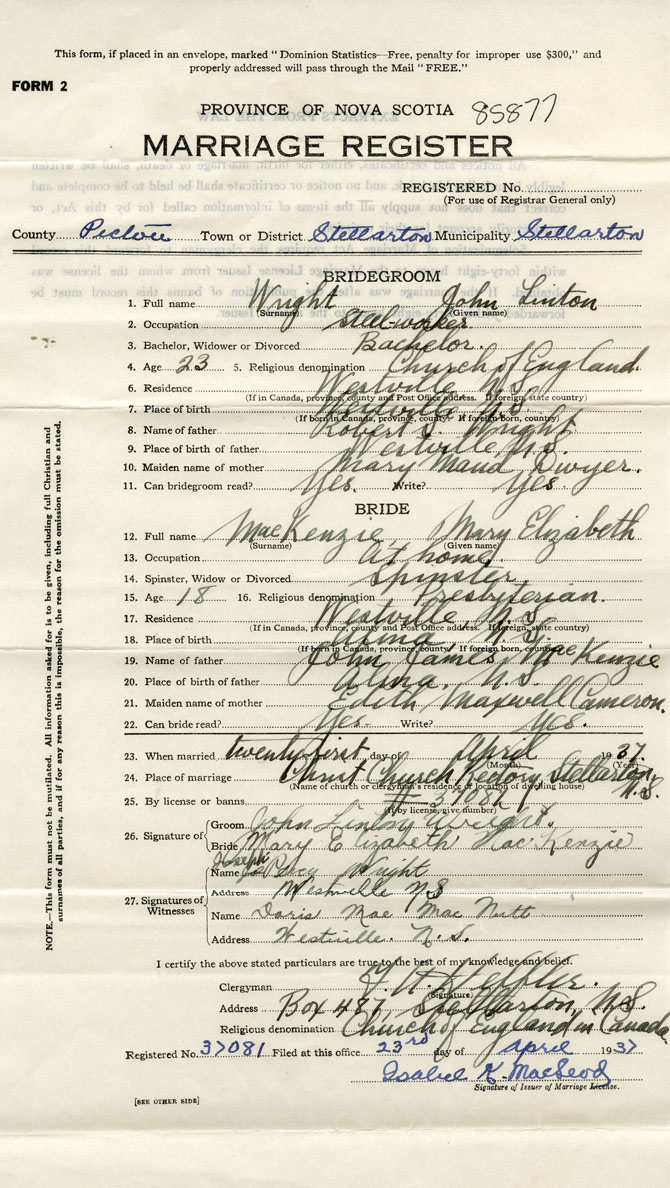 This form, if placed in an envelope, marked "Dominion Statistics—Free, penalty for improper use $300," and
properly addressed will pass through the Mail "FREE."
FORM 2
PROVINCE OF NOVA SCOTIA 85877
MARRIAGE REGISTER
REGISTERED No.
(For use of Registrar General only)
County Pictou Town or District Stellarton Municipality Stellarton
BRIDEGROOM
1. Full name Wright John Linton
(Surname) (Given name)
2. Occupation Steelworker
3. Bachelor, Widower or Divorced Bachelor.
4. Age 23 5. Religious denomination Church of England.
6. Residence Westville N.S.
(If in Canada, province, county and Post Office address. If foreign, state country)
7. Place of birth Westville N.S.
(If born in Canada, province, county. If foreign born, country)
8. Name of father Robert S. Wright
9. Place of birth of father Westville N.S.
10. Maiden name of mother Mary Maud Dwyer.
11. Can bridegroom read? Yes. Write? Yes
BRIDE
12. Full name MacKenzie Mary Elizabeth
(Surname) (Given name)
13. Occupation At home
14. Spinster, Widow or Divorced Spinster
15. Age 18 16. Religious denomination Presbyterian.
17. Residence Westville N.S.
(If in Canada, province, county and Post Office address. If foreign, state country)
18. Place of birth Alma N.S.
(If born in Canada, province, county. If foreign born, country)
19. Name of father John James MacKenzie
20. Place of birth of father Alma, N.S.
21. Maiden name of mother Edith Maxwell Cameron.
22. Can bride read? Yes. Write? Yes.
23. When married twenty-first day of April 1937.
(Month) (Year)
24. Place of marriage Christ Church Rectory, Stellarton, N.S.
(Name of church or clergyman's residence or location of dwelling house)
25. By license or banns # 37081
(If by license, give number)
26. Signature of
Groom John Linton Wright.
Bride Mary Elizabeth MacKenzie
27. Signatures of Witnesses
Joseph
Name Percy Wright
Address Westville N.S
Name Doris Mae MacNutt
Address Westville. N.S.
I certify the above stated particulars are true to the best of my knowledge and belief.
Clergyman
(Signature)
Address Box 487, Stellarton, N.S.
Religious denomination Church of England in Canada
Registered No. 37081 Filed at this office 23rd day of April 1937
Isabel K. MacLeod
Signature of Issuer of Marriage License.
[SEE OTHER SIDE]
NOTE.—This form must not be mutilated. All information asked for is to be given, including full Christian and
surnames of all parties, and if for any reason this is impossible, the reason for the omission must be stated.